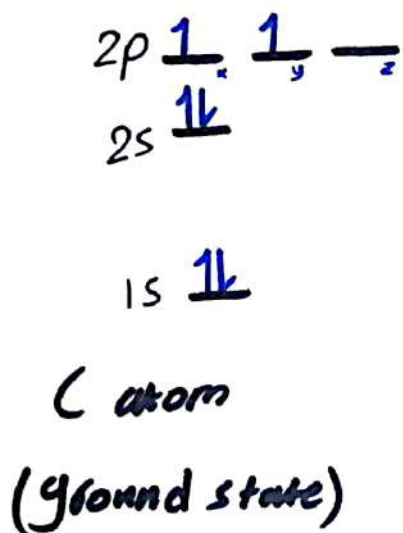 2p 1 x 1 y z
2s 1⇂
1s 1⇂
C atom
(ground state)